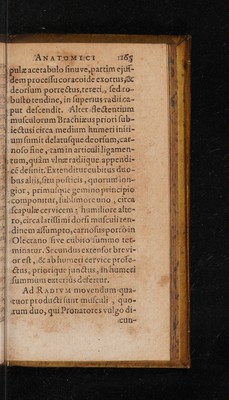 ANATOMICI 165
pulæ acetabulo sinuve, partim ejus-
dem processu coracoide exortus, &
deorsum porrectus, tereti, sed ro-
busto tendine, in superius radii ca-
put descendit. Alter flectentium
musculorum Brachiæus priori sub-
jectus circa medium humeri initi-
um sumit delatusque deorsum, car-
noso fine, tam in articuli ligamen-
tum, quàm ulnæ radiique appendi-
cē desinit. Extenditur cubitus duo-
bus aliis, situ posticis, quorum lon-
gior, primusque gemino principio
componitur, sublimiore uno, circa
scapulæ cervicem; humiliore alte-
ro, circa latissimi dorsi musculi ten-
dinem assumpto, carnosus porro in
Olecrano sive cubito summo ter-
minatur. Secundus extensor brevi-
or est, & ab humeri cervice profe-
ctus, priorique junctus, in humeri
summum exterius defertur.
Ad RADIUM movendum qua-
tuor producti sunt musculi, quo-
rum duo, qui Pronatores vulgo di-
cun-